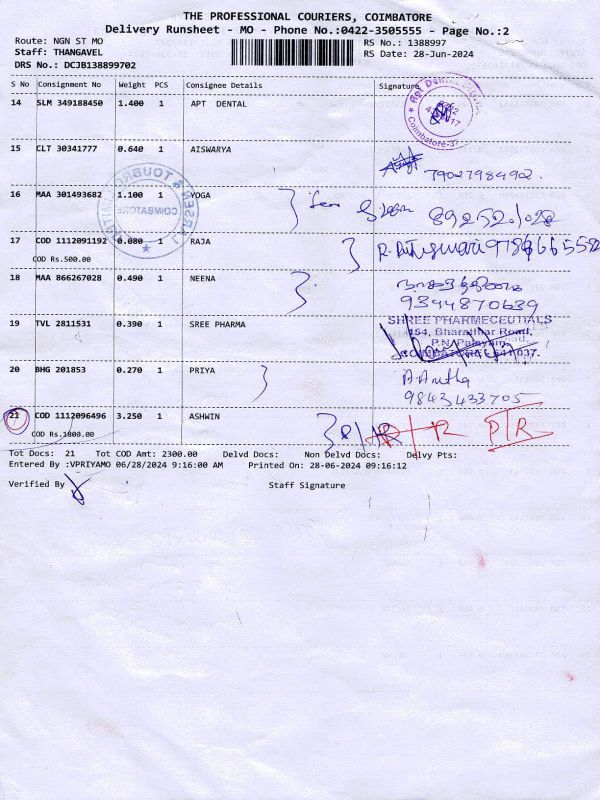 THE PROFESSIONAL COURIERS, COIMBATORE
Delivery Runsheet - MO - Phone No.:0422-3505555 - Page No.:2
Route: NGN ST MO
RS No.: 1388997
Staff: THANGAVEL
RS Date: 28-Jun-2024
DRS No.: DCJB138899702
S No Consignment No Weight PCS Consignee Details Signature
14 SLM 349188450 1.400 1 APT DENTAL
Coimbatore-3
15 CLT 30341777 0.640 1 AISWARYA
7902798492.
LARSEN & TOUBRO LIMITED
COIMBATORE
16 MAA 301493682 1.100 1 YOGA
17 COD 1112091192 0.080 1 RAJA
COD Rs.500.00
18 MAA 866267028 0.490 1 NEENA
9344870639
19 TVL 2811531 0.390 1 SREE PHARMA
SHREE PHARMECEUTICALS
454, Bharathiar Road,
P.N. Palayam,
COIMBATORE - 641 037.
20 BHG 201853 0.270 1 PRIYA
9843433705
21 COD 1112096496 3.250 1 ASHWIN P/R
COD Rs.1800.00
Tot Docs: 21 Tot COD Amt: 2300.00 Delvd Docs: Non Delvd Docs: Delvy Pts:
Entered By :VPRIYAMO 06/28/2024 9:16:00 AM Printed On: 28-06-2024 09:16:12
Verified By Staff Signature